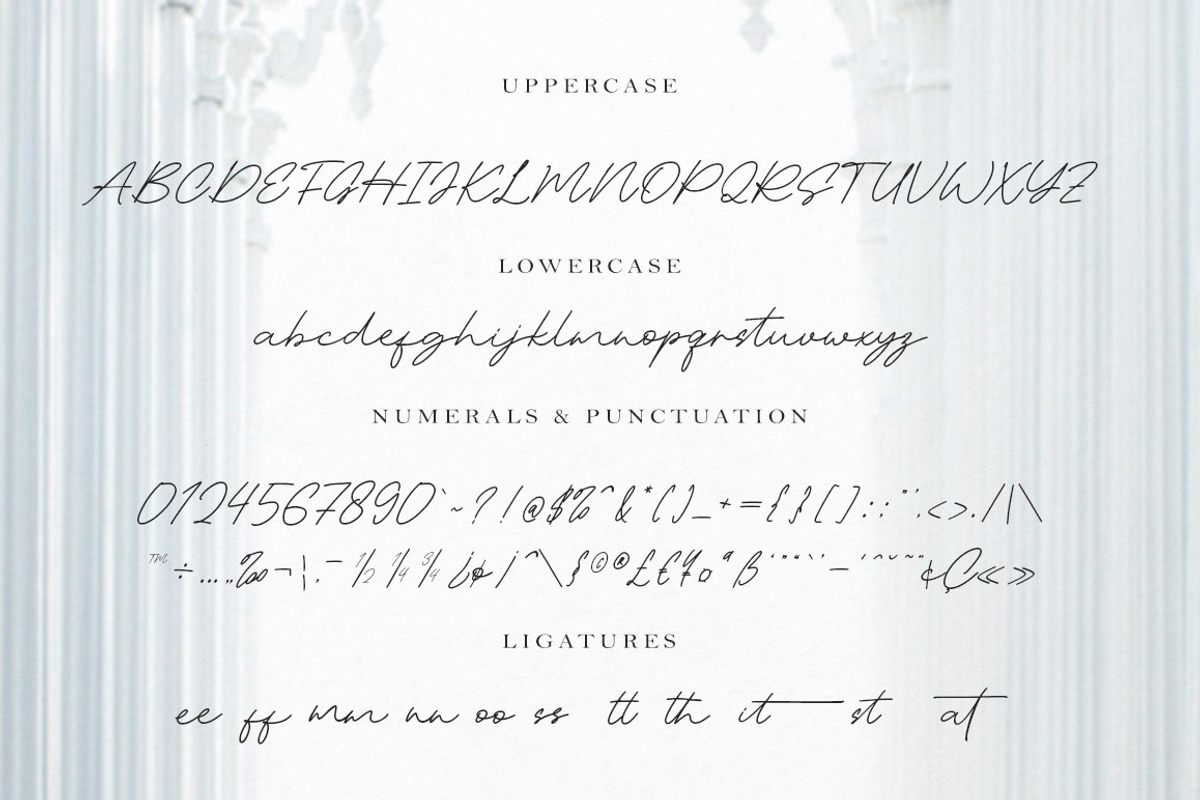 UPPERCASE
ABCDEFGHIJKLMNOPQRSTUVWXYZ
LOWERCASE
abcdefghijklmnopqrstuvwxyz
NUMERALS & PUNCTUATION
0124567890`~?!@$%^&*()_+={}[]:;"'<>./|\
™÷…„‰¬¦‚¯½¼¾¿¢¡ˆ\§©®£€¥ºªß‘’“”–´ˆˇ˘˜¨¢Ç«»
LIGATURES
ee ff mm nn oo ss tt th it st at